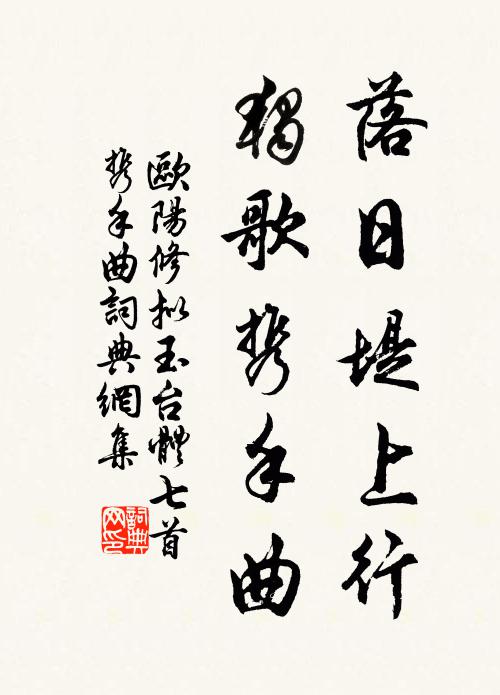 落日堤上行
獨歌携手曲
歐陽修拟玉台體七首
携手曲詞典網集
詞典网印